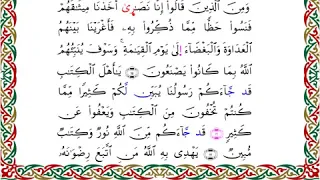 وَمِنَ الَّذِينَ قَالُوا إِنَّا نَصَٰرَىٰ أَخَذْنَا مِيثَٰقَهُمْ
فَنَسُوا حَظًّا مِمَّا ذُكِّرُوا بِهِ فَأَغْرَيْنَا بَيْنَهُمُ
الْعَدَاوَةَ وَالْبَغْضَاءَ إِلَىٰ يَوْمِ الْقِيَٰمَةِ ۚ وَسَوْفَ يُنَبِّئُهُمُ
اللَّهُ بِمَا كَانُوا يَصْنَعُونَ يَٰأَهْلَ الْكِتَٰبِ
قَدْ جَاءَكُمْ رَسُولُنَا يُبَيِّنُ لَكُمْ كَثِيرًا مِمَّا
كُنْتُمْ تُخْفُونَ مِنَ الْكِتَٰبِ وَيَعْفُوا عَنْ
كَثِيرٍ ۚ قَدْ جَاءَكُمْ مِنَ اللَّهِ نُورٌ وَكِتَٰبٌ
مُبِينٌ يَهْدِي بِهِ اللَّهُ مَنِ اتَّبَعَ رِضْوَٰنَهُ